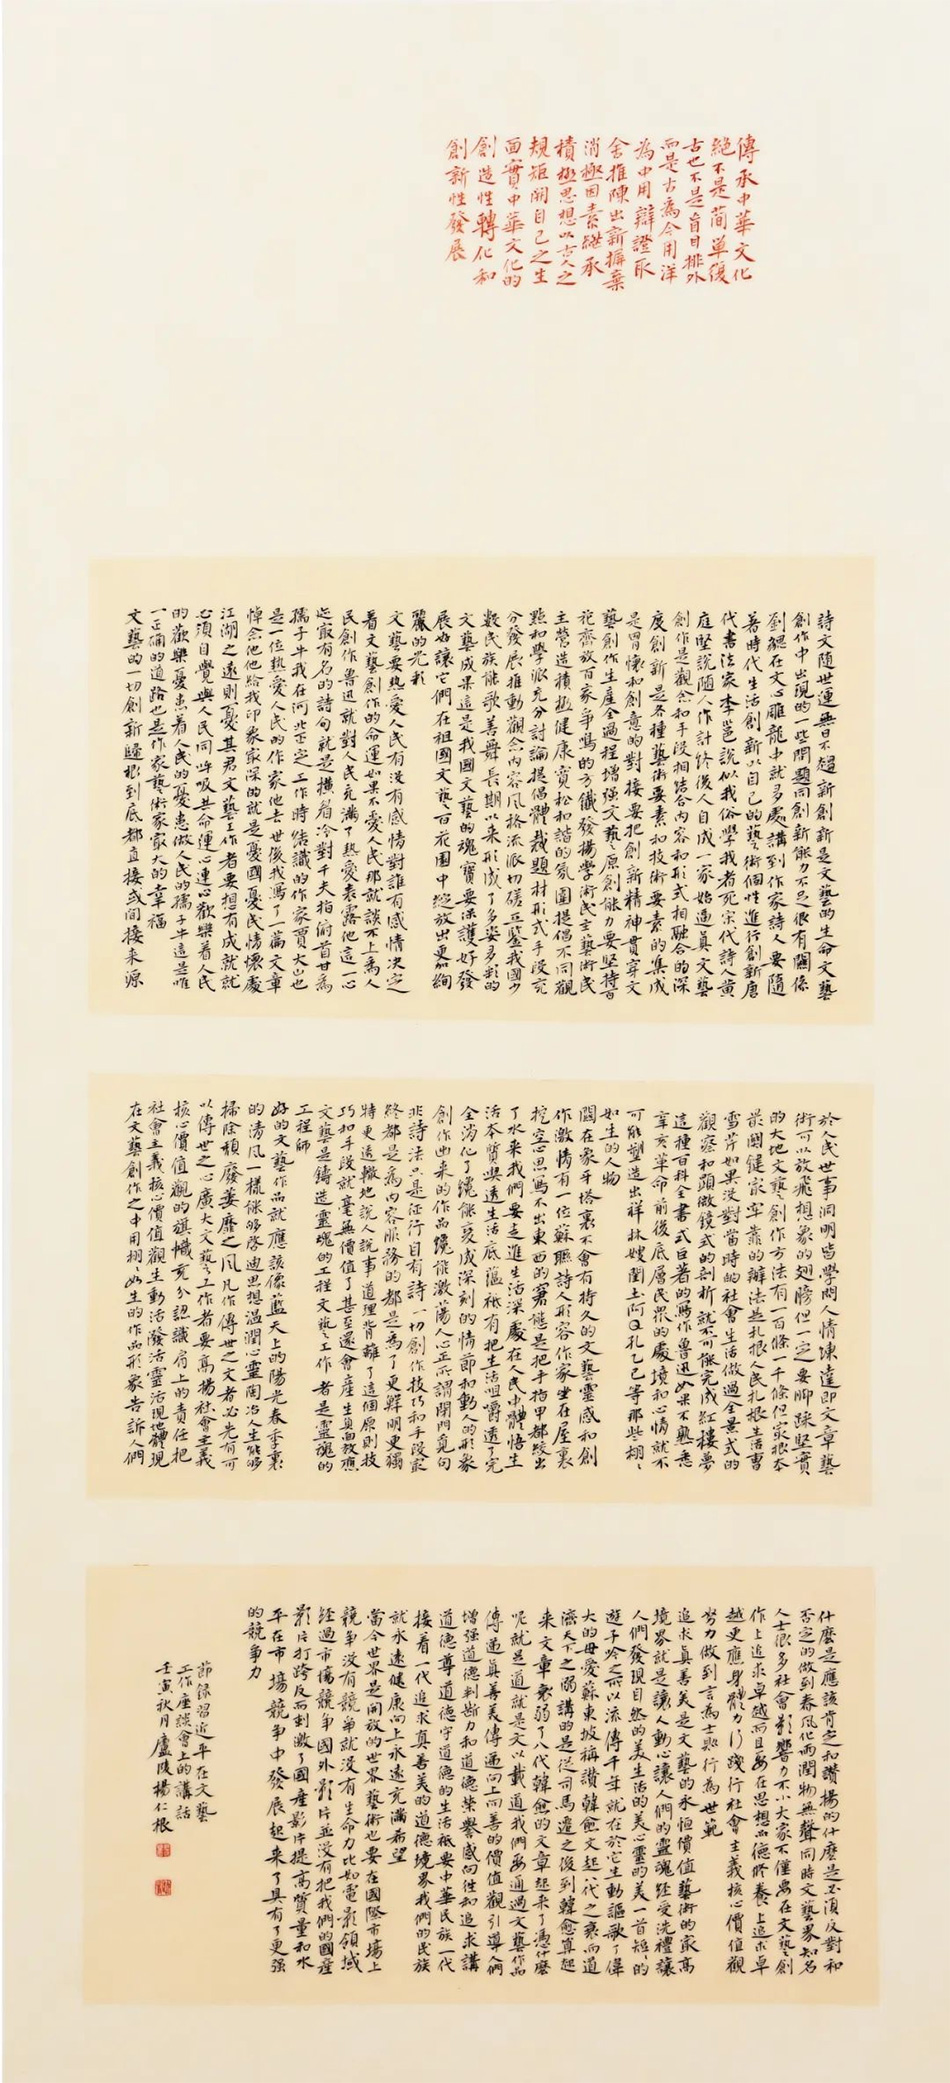 傳承中華文化
絕不是簡單復
古也不是盲目排外
而是古為今用洋
為中用辯證取
舍推陳出新摒棄
消極因素繼承
積極思想以古人之
規矩開自己之生
面實中華文化的
創造性轉化和
創新性發展
詩文隨世運無日不趨新創新是文藝的生命文藝
創作中出現的一些問題同創新能力不足很有關係
劉勰在文心雕龍中就多處講到作家詩人要隨
著時代生活創新以自己的藝術個性進行創新唐
代書法家李邕說似我俗學我者死宋代詩人黃
庭堅說隨人作計終後人自成一家始逼真文藝
創作是觀念和手段相結合內容和形式相融合的深
度創新是各種藝術要素和技術要素的集成
是胸懷和創意的對接要把創新精神貫穿文
藝創作生產全過程增強文藝原創能力要堅持百
花齊放百家爭鳴的方鍼發揚學術民主藝術民
主營造積極健康寬松和諧的氛圍提倡不同觀
點和學派充分討論提倡體裁題材形式手段充
分發展推動觀念內容風格流派切磋互鑒我國少
數民族能歌善舞長期以來形成了多姿多彩的
文藝成果這是我國文藝的瑰寶要保護好發
展好讓它們在祖國文藝百花園中綻放出更加絢
麗的光彩
文藝要熱愛人民有沒有感情對誰有感情決定
著文藝創作的命運如果不愛人民那就談不上為人
民創作魯迅就對人民充滿了熱愛表露他這一心
迹最有名的詩句就是橫眉冷對千夫指俯首甘為
孺子牛我在河北正定工作時結識的作家賈大山也
是一位熱愛人民的作家他去世後我寫了一篇文章
悼念他他給我印象最深的就是憂國憂民情懷處
江湖之遠則憂其君文藝工作者要想有成就就
必須自覺與人民同呼吸共命運心連心歡樂着人民
的歡樂憂患着人民的憂患做人民的孺子牛這是唯
一正確的道路也是作家藝術家最大的幸福
文藝的一切創新歸根到底都直接或間接來源
於人民世事洞明皆學問人情練達即文章藝
術可以放飛想象的翅膀但一定要腳踩堅實
的大地文藝創作方法有一百條一千條但最根本
最關鍵最牢靠的辦法是扎根人民扎根生活曹
雪芹如果沒對當時的社會生活做過全景式的
觀察和顯微鏡式的剖析就不可能完成紅樓夢
這種百科全書式巨著的寫作魯迅如果不熟悉
辛亥革命前後底層民眾的處境和心情就不
可能塑造出祥林嫂閏土阿Q孔乙己等那些栩栩
如生的人物
關在象牙塔裏不會有持久的文藝靈感和創
作激情有一位蘇聯詩人形容作家坐在屋裏
挖空心思寫不出東西的窘態是把手指甲都絞出
了水來我們要走進生活深處在人民中體悟生
活本質吃透生活底蘊祗有把生活咀嚼透了完
全消化了纔能變成深刻的情節和動人的形象
創作出來的作品纔能激蕩人心正所謂閉門覓句
非詩法只是征行自有詩一切創作技巧和手段最
終都是為內容服務的都是為了更鮮明更獨
特更透徹地說人說事道理背離了這個原則技
巧和手段就毫無價值了甚至還會產生負面效應
文藝是鑄造靈魂的工程文藝工作者是靈魂的
工程師
好的文藝作品就應該像藍天上的陽光春季裏
的清風一樣能够啓迪思想溫潤心靈陶冶人生能够
掃除頹廢萎靡之風凡作傳世之文者必先有可
以傳世之心廣大文藝工作者要高揚社會主義
核心價值觀的旗幟充分認識肩上的責任把
社會主義核心價值觀生動活潑活靈活現地體現
在文藝創作之中用栩栩如生的作品形象告訴人們
什麼是應該肯定和讚揚的什麼是必須反對和
否定的做到春風化雨潤物無聲同時文藝界知名
人士很多社會影響力不小大家不僅要在文藝創
作上追求卓越而且要在思想品德修養上追求卓
越更應身體力行踐行社會主義核心價值觀
努力做到言為士則行為世範
追求真善美是文藝的永恒價值藝術的最高
境界就是讓人動心讓人們的靈魂經受洗禮讓
人們發現自然的美生活的美心靈的美一首短短的
遊子吟之所以流傳千年就在於它生動謳歌了偉
大的母愛蘇東坡稱讚韓愈文起八代之衰而道
濟天下之溺講的是從司馬遷之後到韓愈算起
來文章衰弱了八代韓愈的文章起來了憑什麼
呢就是道就是文以載道我們要通過文藝作品
傳遞真善美傳遞向上向善的價值觀引導人們
增强道德判斷力和道德榮譽感向往和追求講
道德尊道德守道德的生活祗要中華民族一代
接着一代追求真善美的道德境界我們的民族
就永遠健康向上永遠充滿希望
當今世界是開放的世界藝術也要在國際市場上
競爭沒有競爭就沒有生命力比如電影領域
經過市場競爭國外影片並沒有把我們的國產
影片打跨反而刺激了國產影片提高質量和水
平在市場競爭中發展起來了具有了更强
的競爭力
節錄習近平在文藝
工作座談會上的講話
壬寅秋月廬陵楊仁根